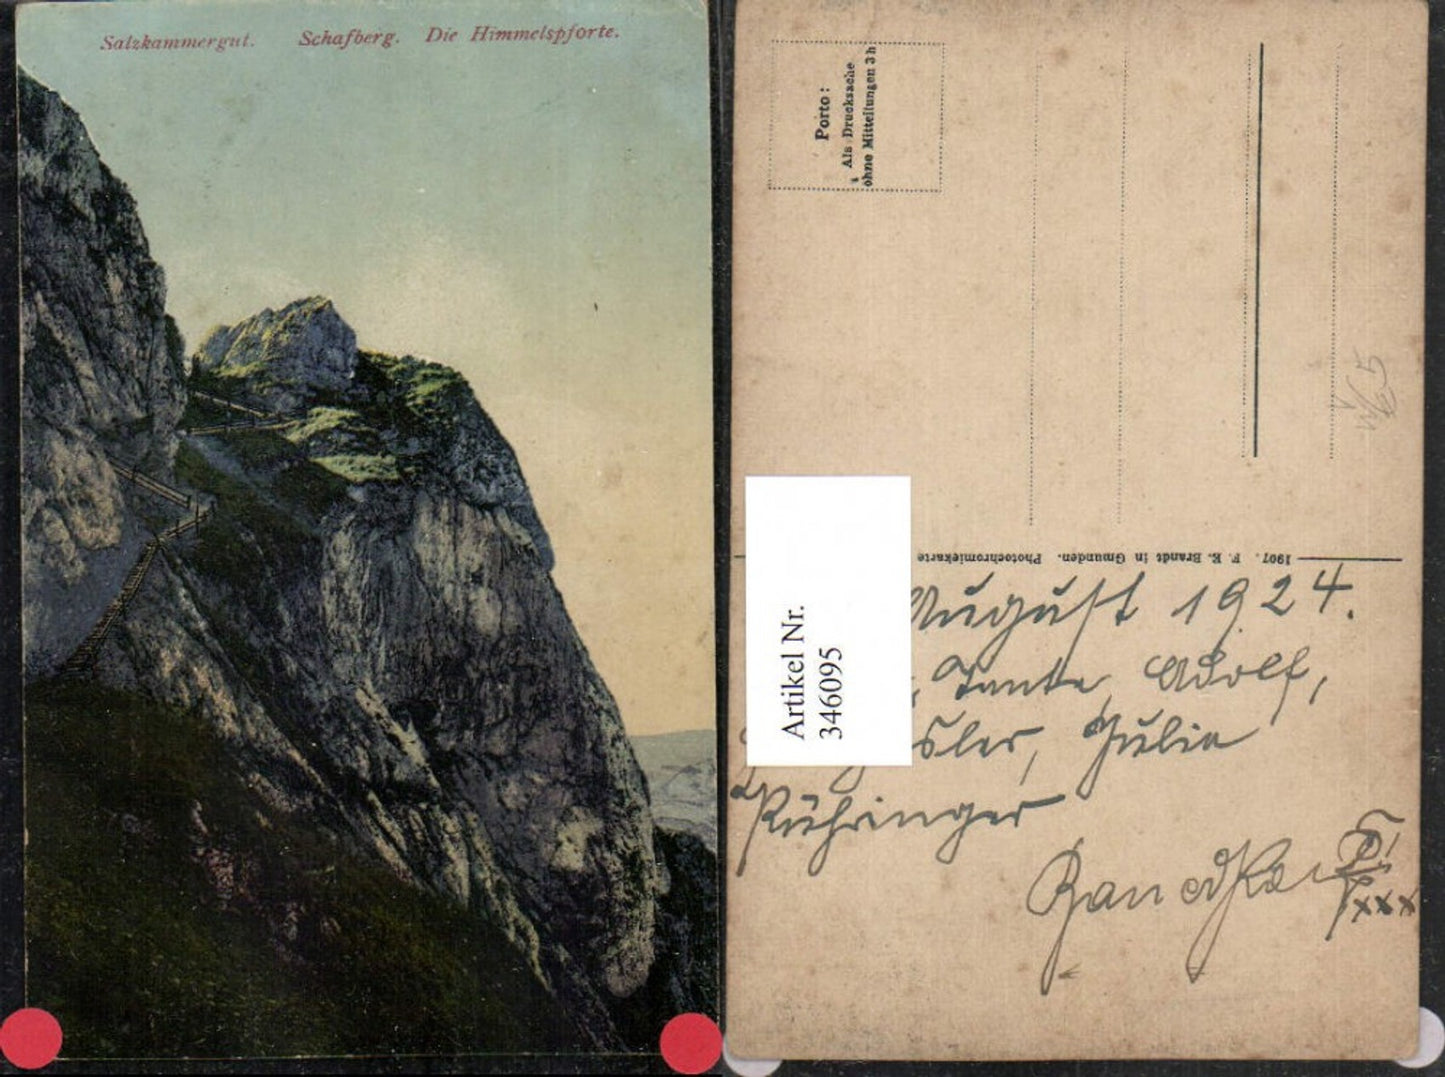 Salzkammergut. Schafberg. Die Himmelspforte.
Porto:
Als Drucksache
ohne Mitteilungen 3 h
1907. F. E. Brandt in Gmunden. Photochromiekarte
Artikel Nr.
346095
August 1924.
Tante, Adolf,
Julia
Pühringer